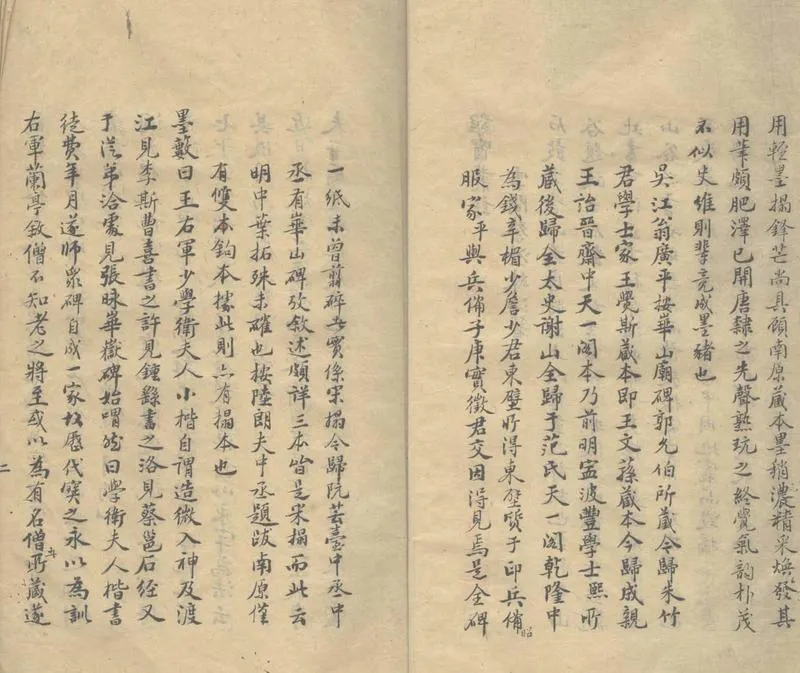 用輕墨搨鋒芒尚具顧南原藏本墨稍濃精采煥發其
用筆頗肥澤已開唐隸之先聲熟玩之終覺氣韵朴茂
不似史維則輩竞成墨豬也
吳江翁廣平按華山廟碑郭允伯所藏今歸朱竹
君學士家王覺斯藏本即王文蓀藏本今歸成親
王詒晉齋中天一閣本乃前明寍波豐學士熙所
藏後歸全太史謝山全歸于范氏天一閣乾隆中
為錢辛楣少詹少君東壁所得東壁質于印兵備
昭
服家平與兵備子庚實徵君交因得見焉是全碑
一紙未曾翦碎安實係宋搨今歸阮芸臺中丞中
丞有華山碑攷敘述頗詳三本皆是宋搨而此云
明中葉拓殊未確也按陸朗夫中丞題跋南原僅
有雙本鈎本據此則亦有搨本也
墨藪曰王右軍少學衛夫人小楷自謂造微入神及渡
江見李斯曹喜書之許見鍾繇書之洛見蔡邕石經又
于從弟洽處見張昹華嶽碑始喟然曰學衛夫人楷書
徒費年月遂師眾碑自成一家故歷代寶之永以為訓
右軍蘭亭敘僧不知老之將至或以為有名僧所藏遂
二